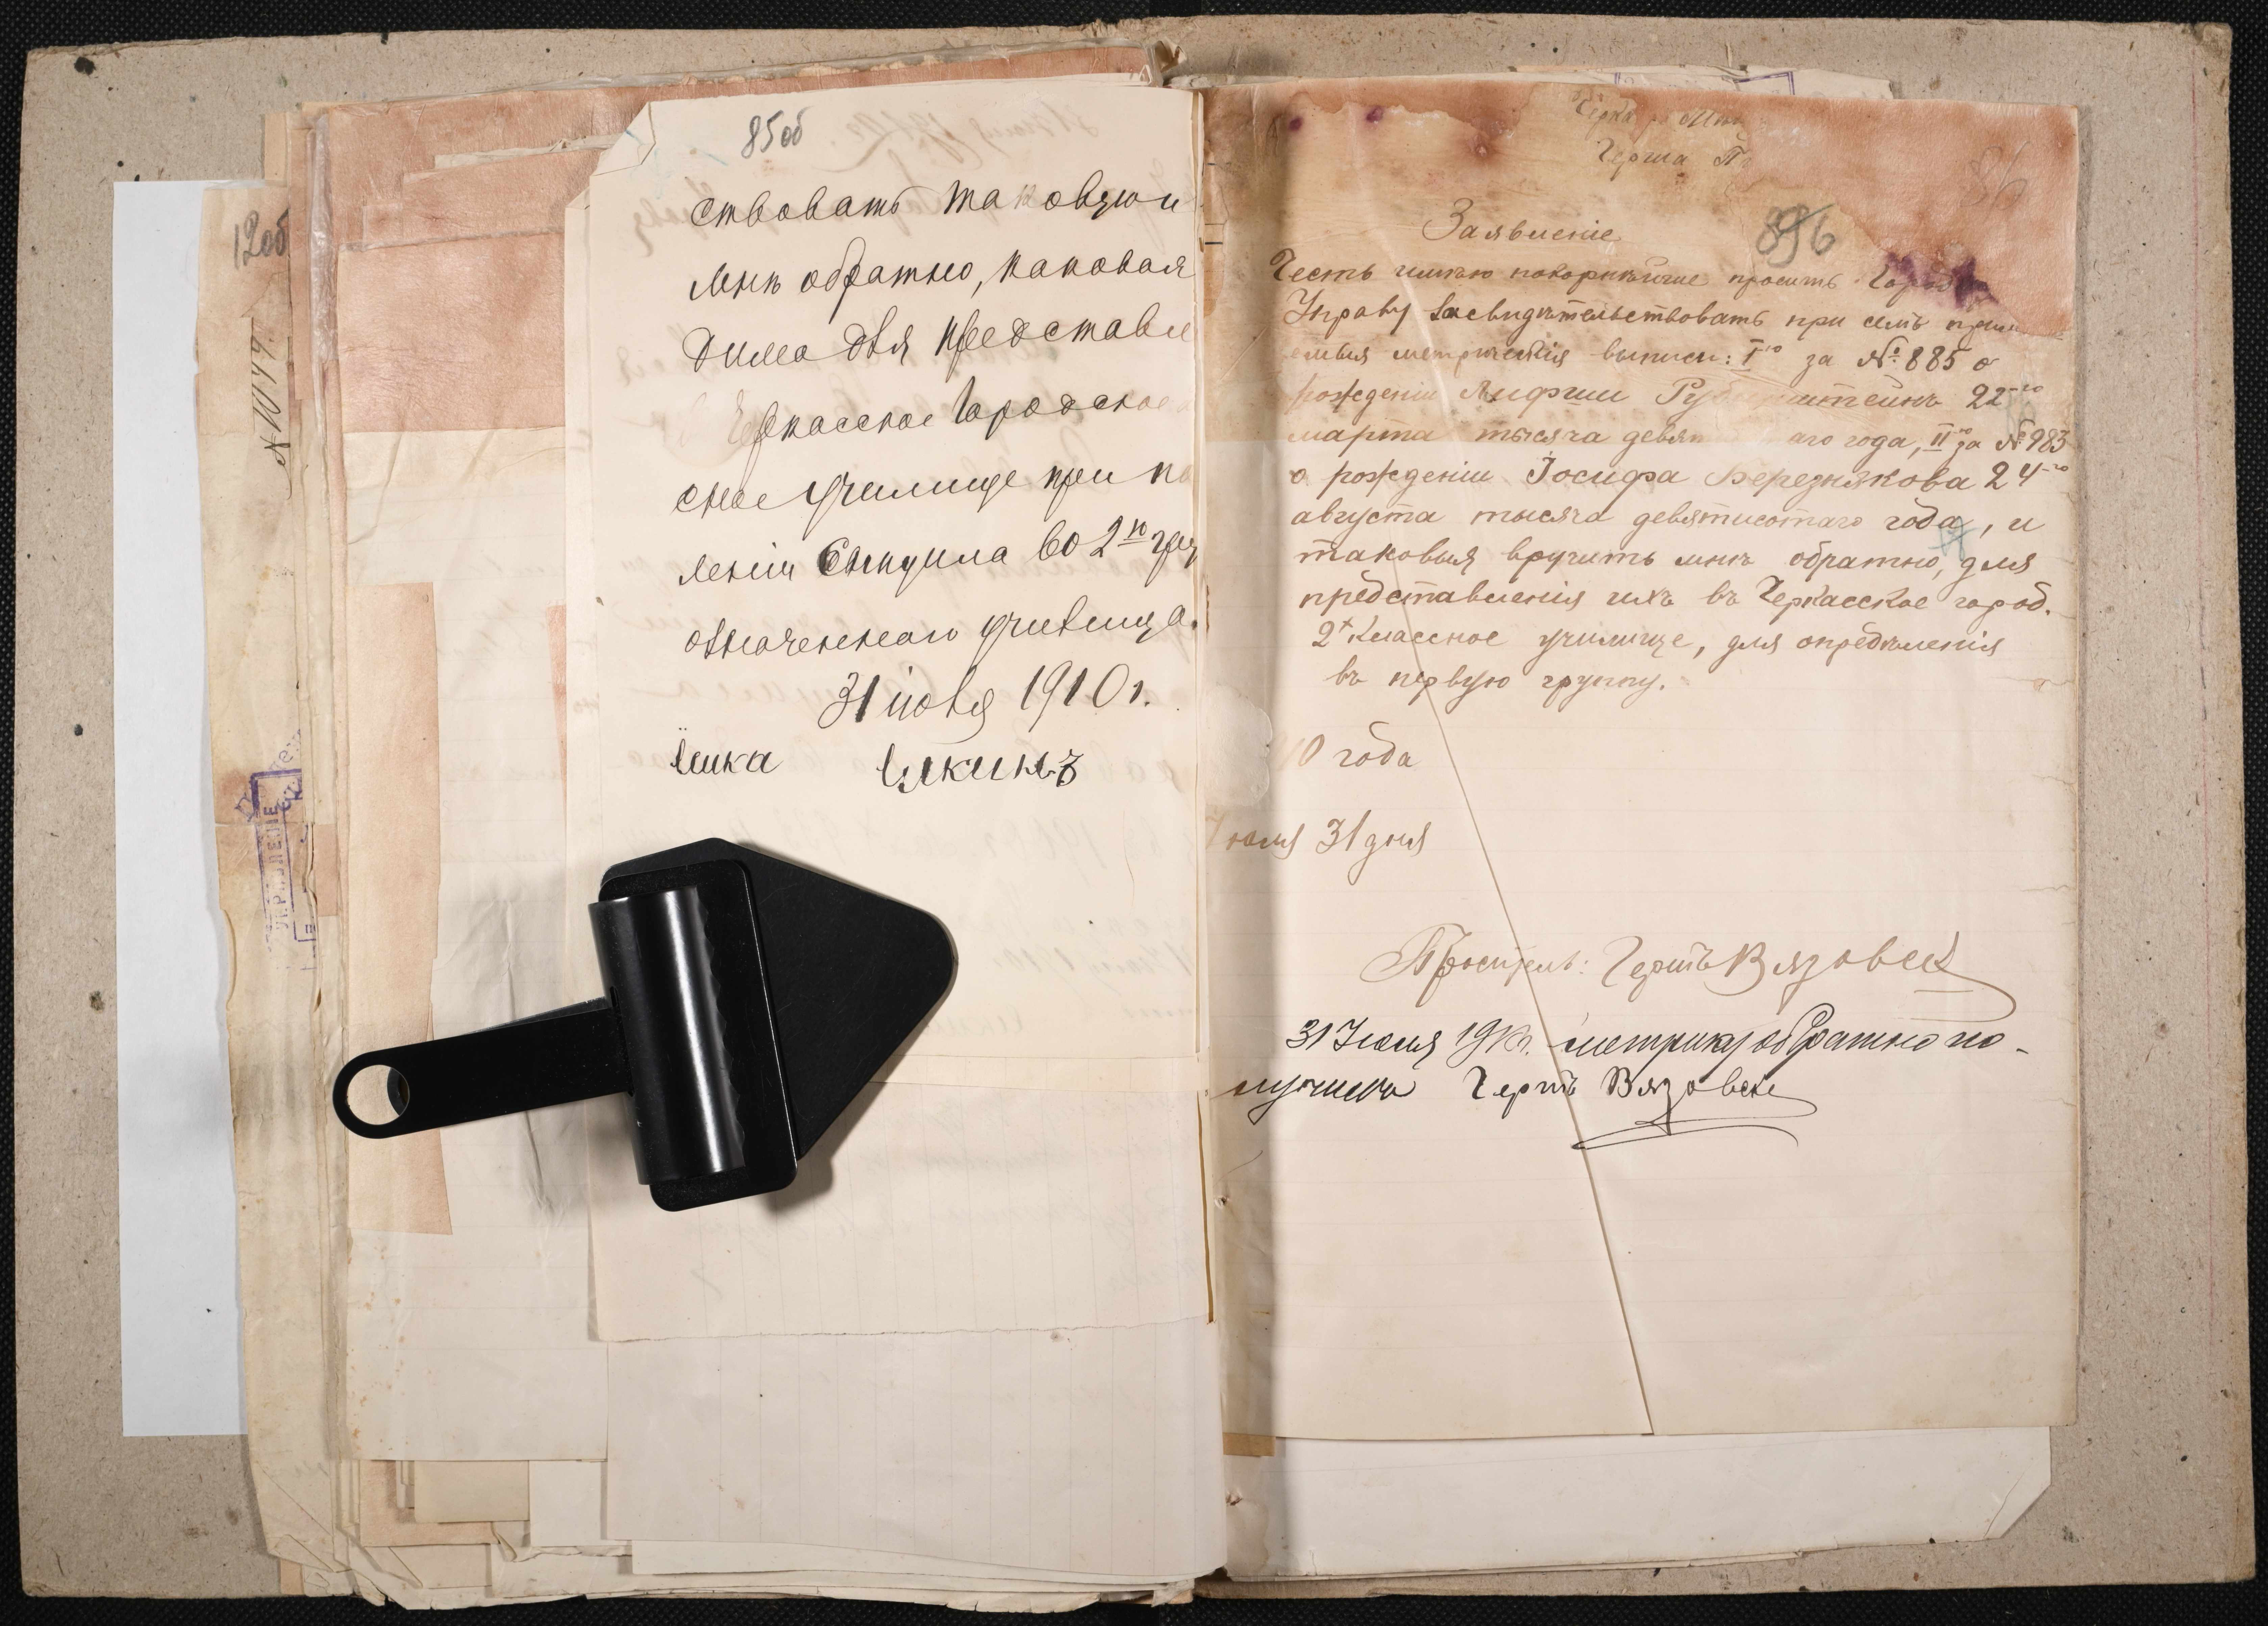 85об
ствовать таковую и
мнѣ обратно, каковая
дима для представле
Черкасское Городское
сное училище при по
леніи сына во 2ю гру
означеннаго училища.
31 іюля 1910 г.
Ицка Ицкинъ
12об
№ 10144.
УПРАВЛЕНІЕ
Черка Мѣщ
Герша
86
Заявленіе
Честь имѣю покорнѣйше просить Город
Управу засвидѣтельствовать при семъ прила
емыя метрическія выписи: I-ю за №885 о
рожденіи Руб штейнъ 22-го
марта тысяча девят аго года, II-ю за №983
о рожденіи Іосифа Березнякова 24-го
августа тысяча девятисотаго года, и
таковыя вручить мнѣ обратно, для
представленія ихъ въ Черкасское город.
2х классное училище, для опредѣленія
въ первую группу.
10 года
Іюля 31 дня
Проситель: Гершъ Вязовск
31 Іюля 1910г. метрику обратно по-
лучилъ Гершъ Вязовск